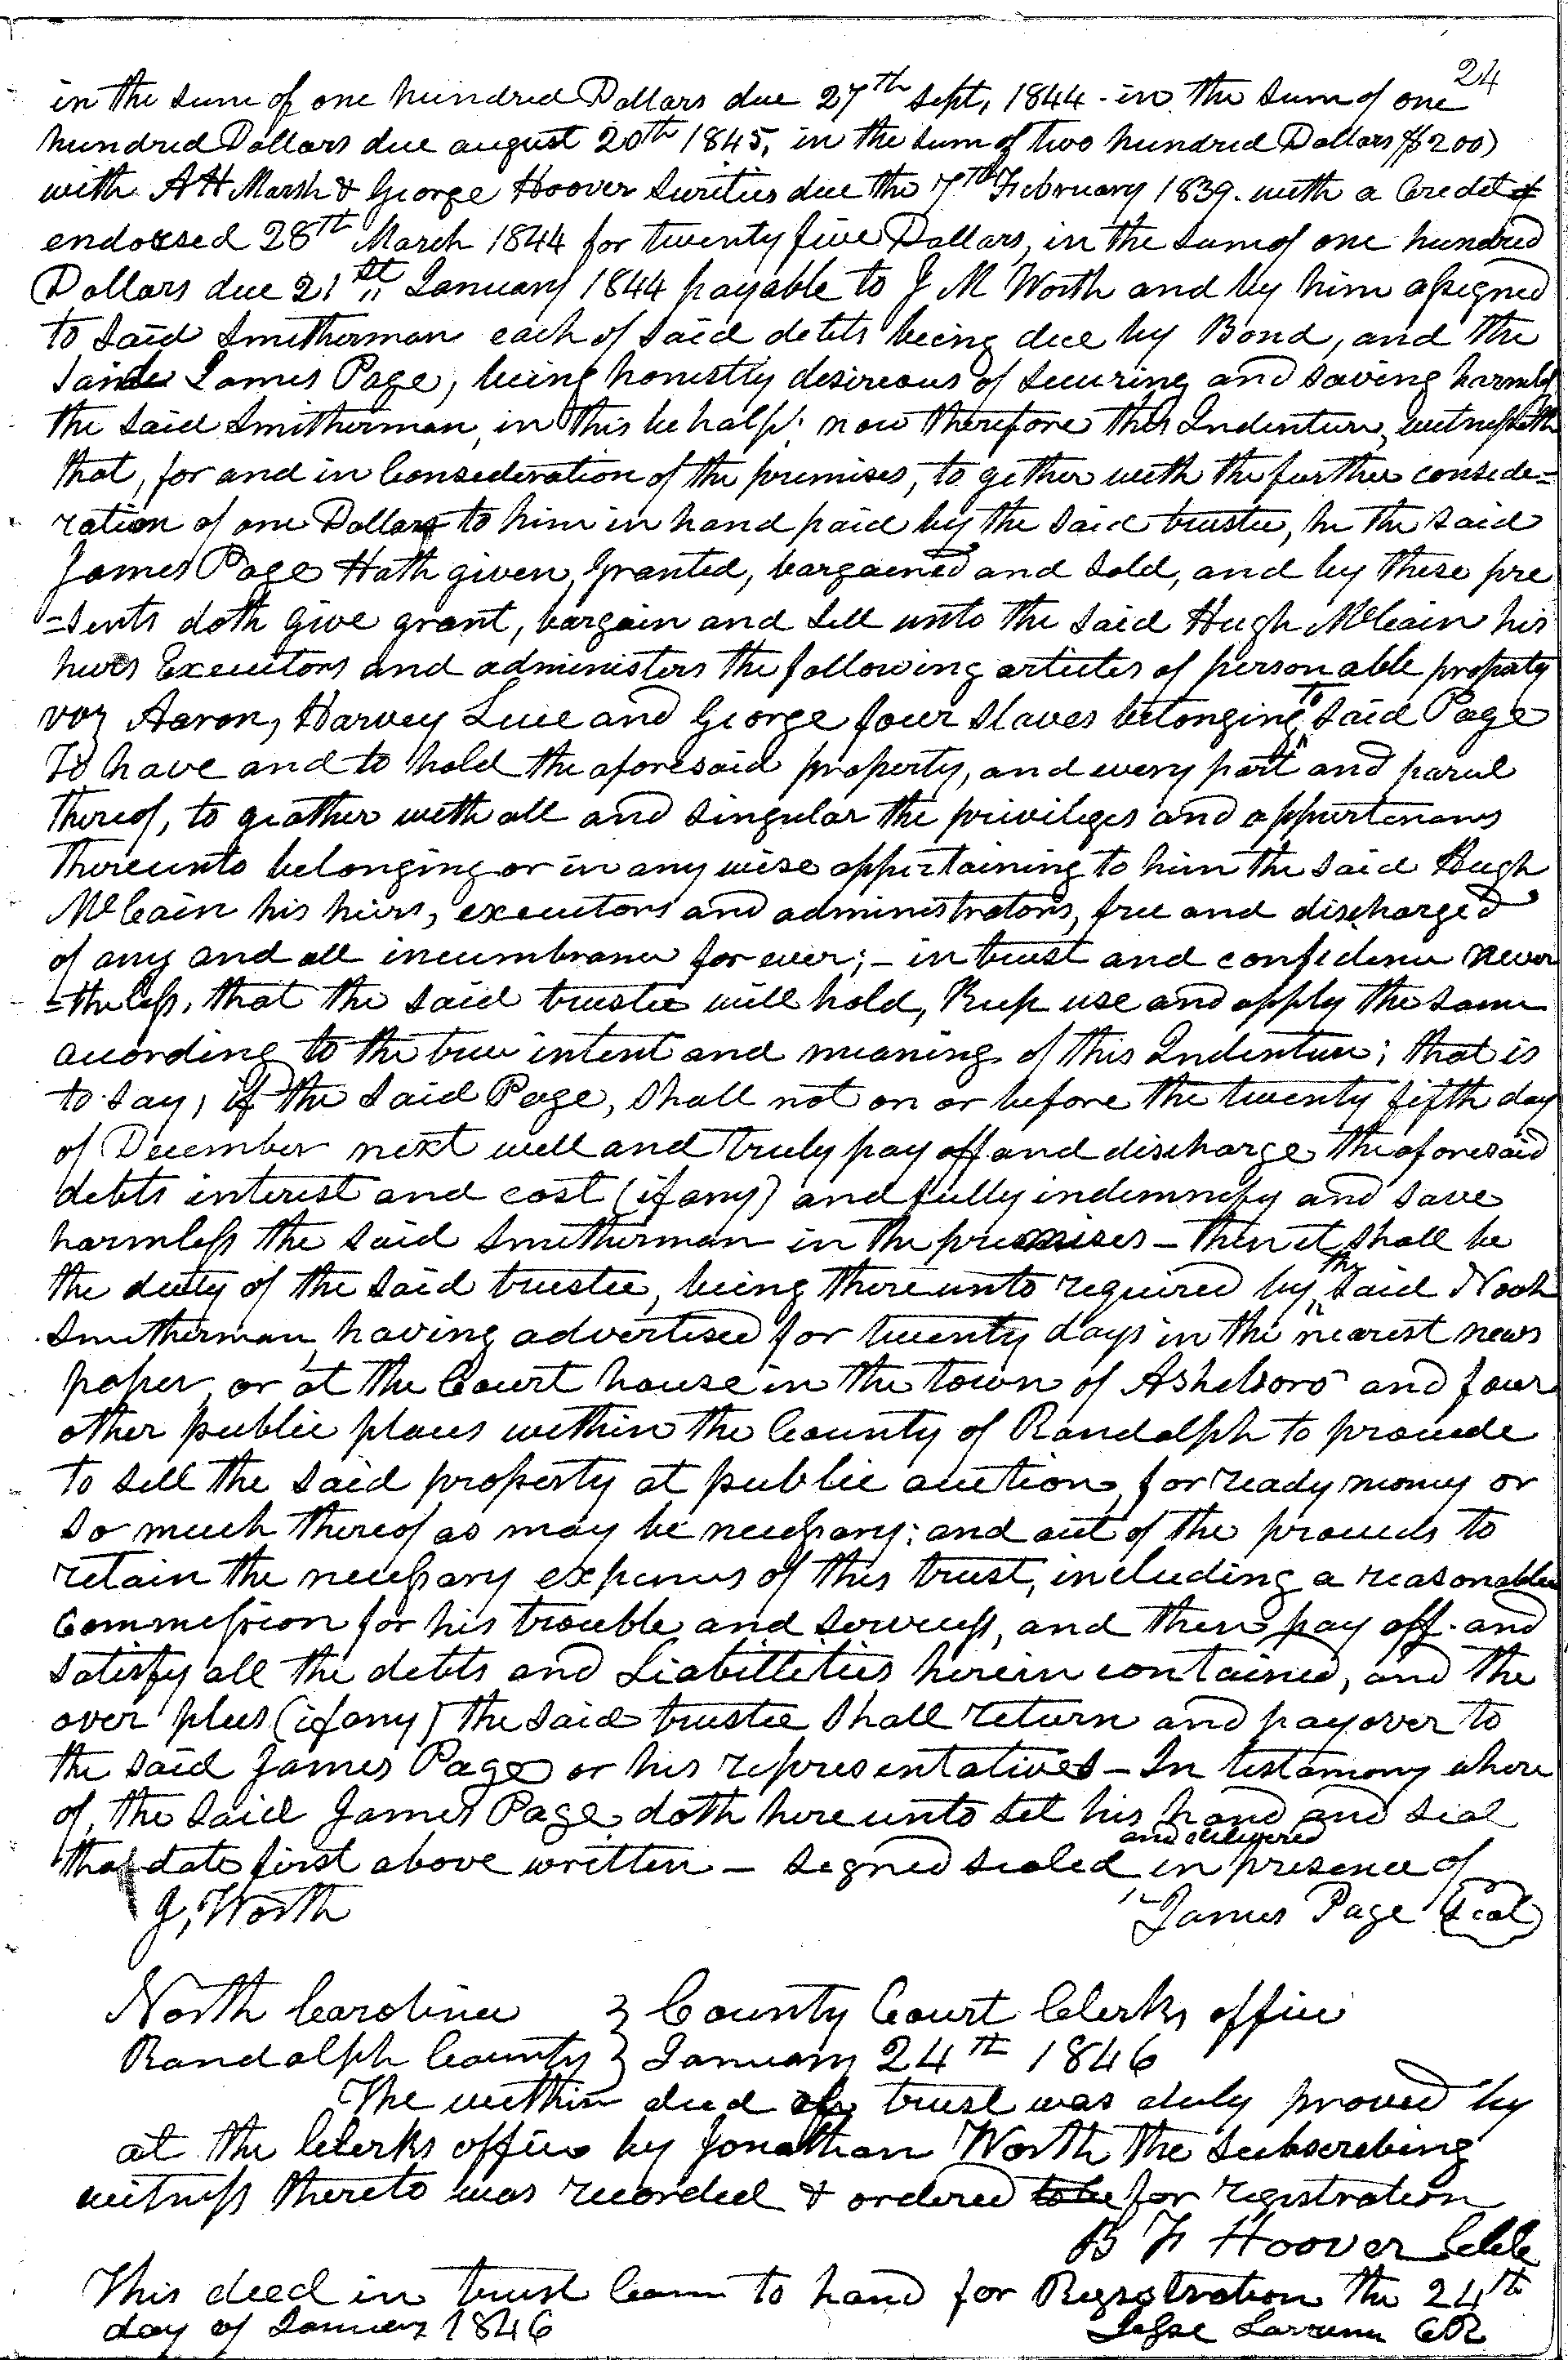 24
in the sum of one hundred Dollars due 27th Sept, 1844 - in the sum of one
hundred Dollars due august 20th 1845, in the sum of two hundred Dollars ($200)
with A H Marsh & George Hoover Surities due the 7th February 1839. with a Credit of
endorsed 28th March 1844 for twenty five Dollars, in the sum of one hundred
Dollars due 21st January 1844 payable to J M Worth and by him assigned
to said Smitherman each of said debts being due by Bond, and the
said James Page, being honestly desireous of securing and saving harmless
the said Smitherman, in this behalf; now therefore this Indenture, witnesseth
that, for and in Consideration of the premises, to gether with the further conside=
ration of one Dollar to him in hand paid by the said trustee, he the said
James Page Hath given, granted, bargained and sold, and by these pre
=sents doth give grant, bargain and sell unto the said Hugh McCain his
heirs Executors and administers the following articles of person able property
viz Aaron, Harvey Luce and George four slaves belonging to said Page
To have and to hold the aforesaid property, and every part and parcel
thereof, to geather with all and singular the privileges and appurtenans
thereunto belonging or in any wise appertaining to him the said Hugh
McCain his heirs, executors and administrators, free and discharged
of any and all incumbrance for ever; - in trust and confidence never
=theless, that the said trustee will hold, Keep use and apply the same
according to the true intent and meaning of this Indenture; that is
to say, if the said Page, shall not on or before the twenty fifth day
of December next well and truly pay off and discharge the aforesaid
debts interest and cost (if any) and fully indemnify and save
harmless the said Smitherman in the premises - then it shall be
the duty of the said trustee, being there unto required by the said Noah
Smitherman, having advertised for twenty days in the nearest news
paper, or at the Court house in the town of Asheboro and four
other public places within the County of Randolph to proceede
to sell the said property at public auction, for ready money or
so much thereof as may be necessary; and out of the proceeds to
retain the necessary expenses of this trust, including a reasonable
Commission for his trouble and servicess, and then pay off. and
satisfy all the debts and Liabillities herein contained, and the
over plus (if any) the said trustee shall return and pay over to
the said James Page or his representatives - In testamony where
of, the said James Page doth here unto set his hand and seal
the date first above written - signed sealed and delivered in presence of
J, Worth James Page (Seal)
North Carolina } County Court Clerks office
Randolph County } January 24th 1846
The within deed of trust was duly proved by
at the Clerks office by Jonathan Worth the subscribing
witness thereto was recorded & ordered to be for registration
B F Hoover Clk
This deed in trust Came to hand for Registration the 24th
day of January 1846 Jesse PR